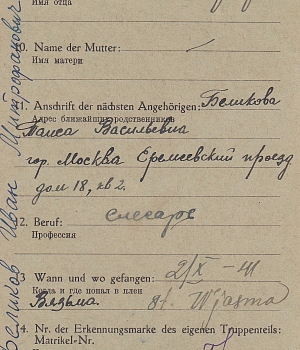 Имя отца
10. Name der Mutter:
Имя матери
11. Anschrift der nächsten Angehörigen: Беликова
Адрес ближайших родственников
Таиса Васильевна
гор. Москва Еремеевский проезд
дом 18, кв 2.
12. Beruf: слесарь
Профессия
13 Wann und wo gefangen: 2/X - 41
Когда и где попал в плен
Вязьма. Wjasma
14. Nr. der Erkennungsmarke des eigenen Truppenteils:
Matrikel-Nr.
Беликов Иван Митрофанович